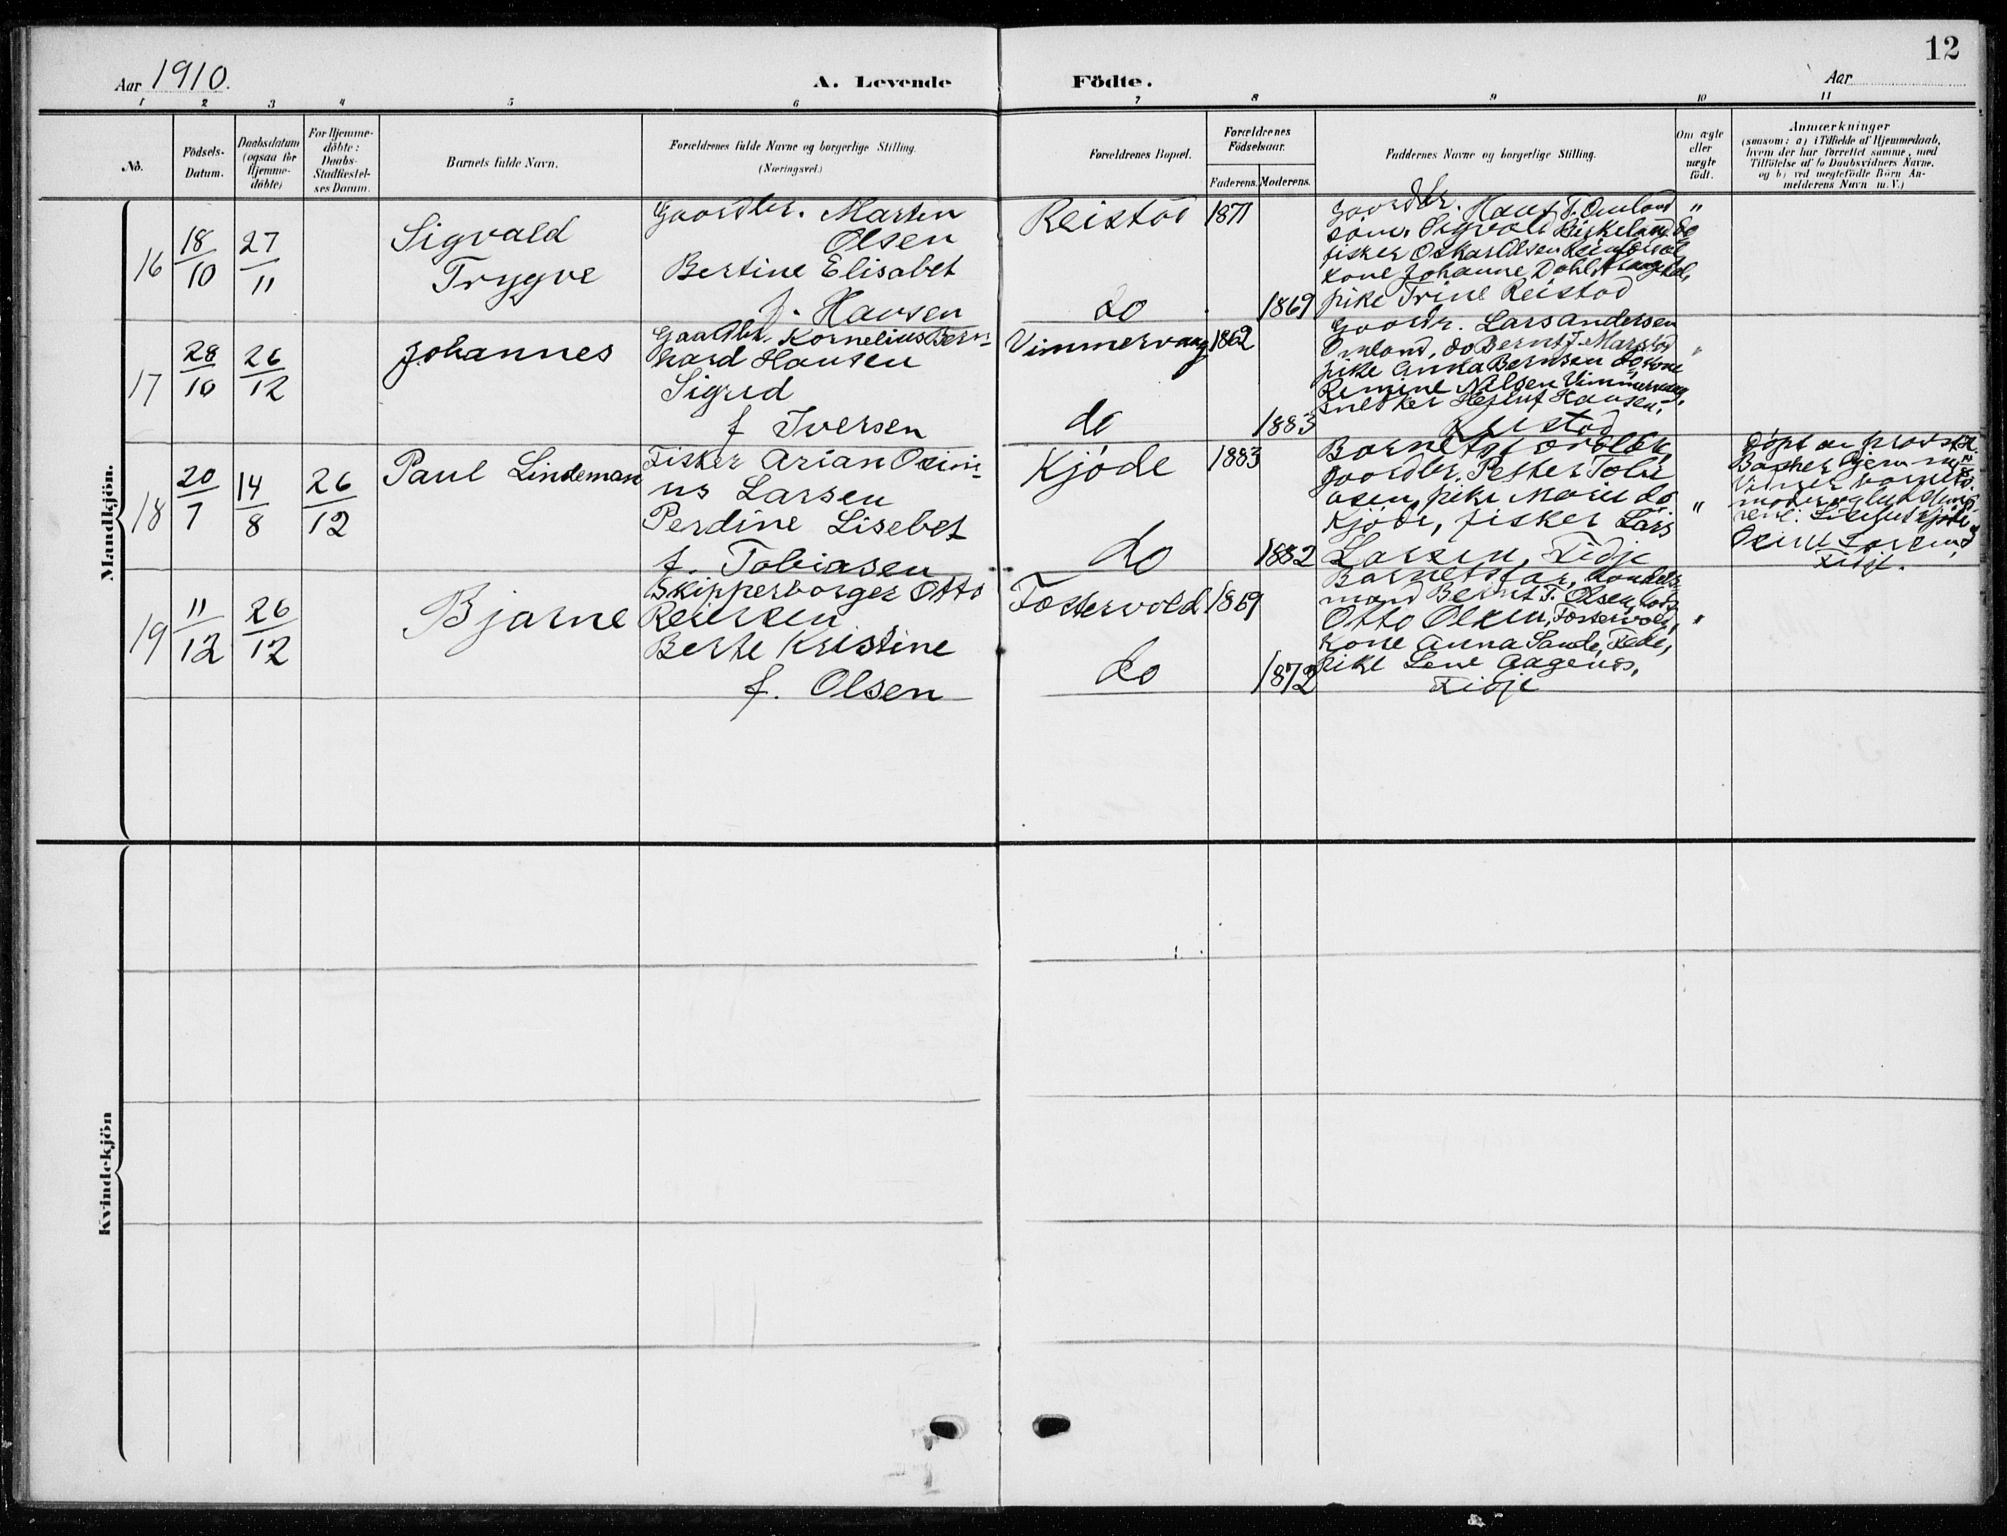 12
Aar 1910.
A. Levende Födte.
Aar
1 2 3 4 5 6 7 8 9 10 11
No.
Födsels-
Datum.
Daabsdatum
(ogsaa for
Hjemme-
döbte)
For Hjemme-
döbte:
Daabs-
Stadfæstel-
ses Datum.
Barnets fulde Navn.
Forældrenes fulde Navne og borgerlige Stilling.
(Næringsvei.)
Forældrenes Bopæl.
Forældrenes
Födselsaar.
Faderens. Moderens.
Faddernes Navne og borgerlige Stilling.
Om ægte
eller
uægte
födt.
Anmærkninger
(saasom: a) i Tilfælde af Hjemmedaab,
hvem der har forrettet samme, med
Tilföielse af to Daabsvidners Navne.
og b) ved uægtefödte Börn An-
melderens Navn m. V.)
Mandkjön.
16
18/10
27/11
Sigvald
Trygve
Gaardbr. Martin
Olsen
Bertine Elisabet
f. Hansen
Reistöd
do
1871
1869
Gaardbr. Hans T. Omland
Sigvald Birkeland do
fisker Oskar Olsen
kone Johanne Dahl
pike Trine Reistöd
"
17
28/10
26/12
Johannes
Gaardbr. Kornelius Bern-
hard Hansen
Sigrid
f Iversen
Vimmervaag
do
1862
1883
Gaardbr. Lars Andersen
Omland, do Bernt J. Marstöd
pike Anna Bernsen do kone
Remine Nilsen Vimmervaag,
snedker Hansen,
Reistöd
18
20/7
14/8
26/12
Paul Lindeman
Fisker Arian Osimi-
us Larsen
Perdine Lisebet
f. Tobiasen
Kjöde
do
1883
1882
Barnets foreldre,
gaardbr. Petter Tobi-
asen, pike Marie do
Kjöde, fisker Lars
Larsen, Fidje
"
döpt av provst
moder
Fidje.
19
11/12
26/12
Bjarne
Skipperborger Otto
Reiersen
Berte Kristine
f. Olsen
Fostervold
do
1869
1872
Barnets far, handels
mand Bernt T. Olsen,
Otto Olsen, Fostervold,
Kone Anna Sande, Fede,
pike Lene Aagenes,
Fidje
"
Kvindekjön